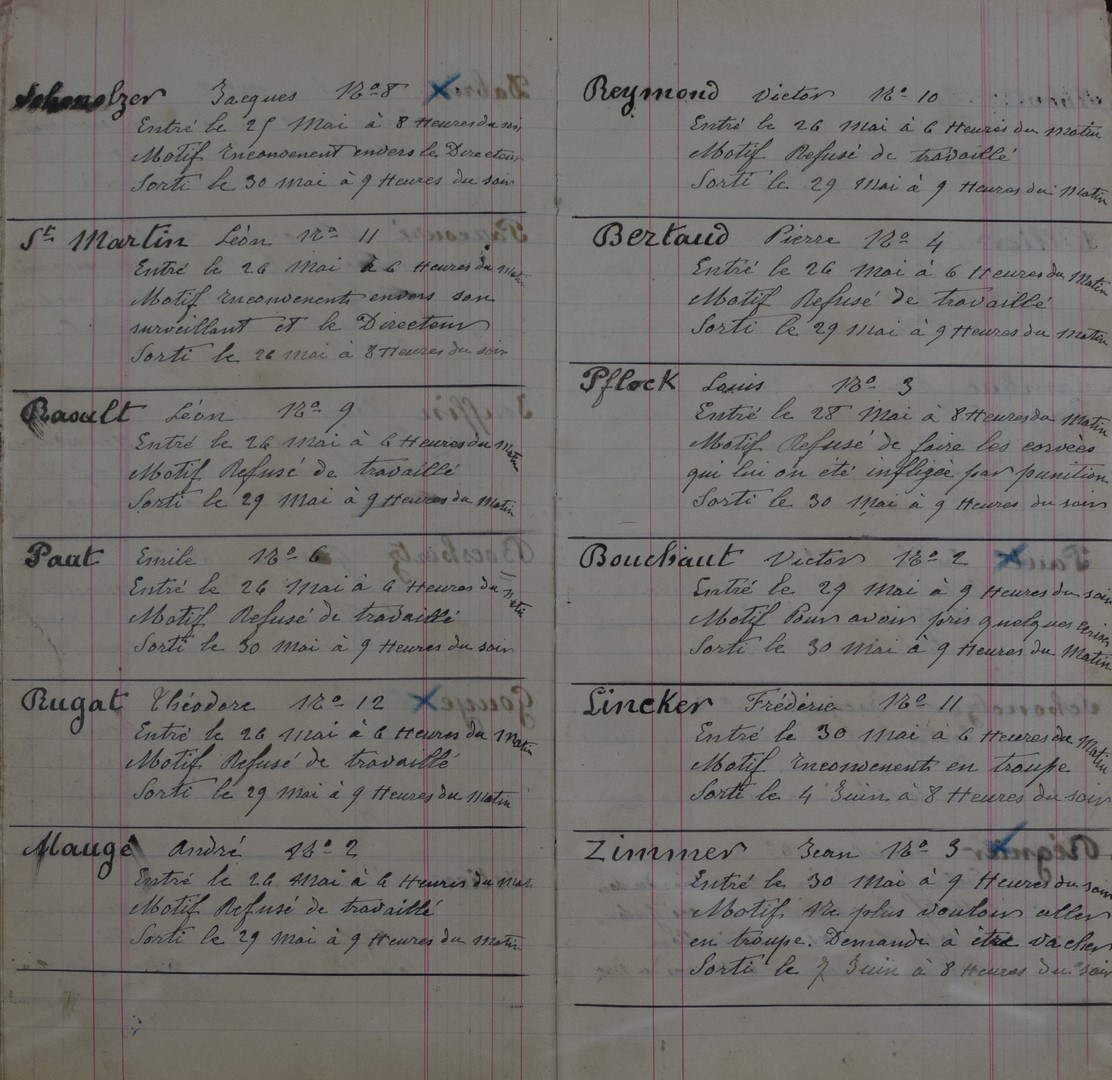 Schonolzer Jacques No 8
Entré le 25 Mai à 8 Heures du soir
Motif Inconvenent envers le Directeur
Sorti le 30 Mai à 9 Heures du soir
St Martin Léon No 11
Entré le 26 Mai à 6 Heures du Matin
Motif Inconvenents envers son
surveillant et le Directeur
Sorti le 26 Mai à 8 Heures du soir
Raoult Léon No 9
Entré le 26 Mai à 6 Heures du Matin
Motif Refusé de travaillé
Sorti le 29 Mai à 9 Heures du Matin
Paut Emile No 6
Entré le 26 Mai à 6 Heures du Matin
Motif Refusé de travaillé
Sorti le 30 Mai à 9 Heures du soir
Rugat Théodore No 12
Entré le 26 Mai à 6 Heures du Matin
Motif Refusé de travaillé
Sorti le 29 Mai à 9 Heures du Matin
Maugé André No 2
Entré le 26 Mai à 6 Heures du Mat
Motif Refusé de travaillé
Sorti le 29 Mai à 9 Heures du Matin
Reymond Victor No 10
Entré le 26 Mai à 6 Heures du Matin
Motif Refusé de travaillé
Sorti le 29 Mai à 9 Heures du Matin
Bertaud Pierre No 4
Entré le 26 Mai à 6 Heures du Matin
Motif Refusé de travaillé
Sorti le 29 Mai à 9 Heures du Matin
Pflock Louis No 3
Entré le 28 Mai à 8 Heures du Matin
Motif Refusé de faire les corvées
qui lui on été infligée par punition
Sorti le 30 Mai à 9 Heures du soir
Bouchaut Victor No 2
Entré le 29 Mai à 9 Heures du soir
Motif Pour avoir pris quelques cerises
Sorti le 30 Mai à 9 Heures du Matin
Lincker Frédéric No 11
Entré le 30 Mai à 6 Heures du Matin
Motif Inconvenents en troupe
Sorti le 4 Juin à 8 Heures du soir
Zimmer Jean No 3
Entré le 30 Mai à 9 Heures du soir
Motif Ne plus vouloir aller
en troupe. Demande à être vacher
Sorti le 7 Juin à 8 Heures du soir